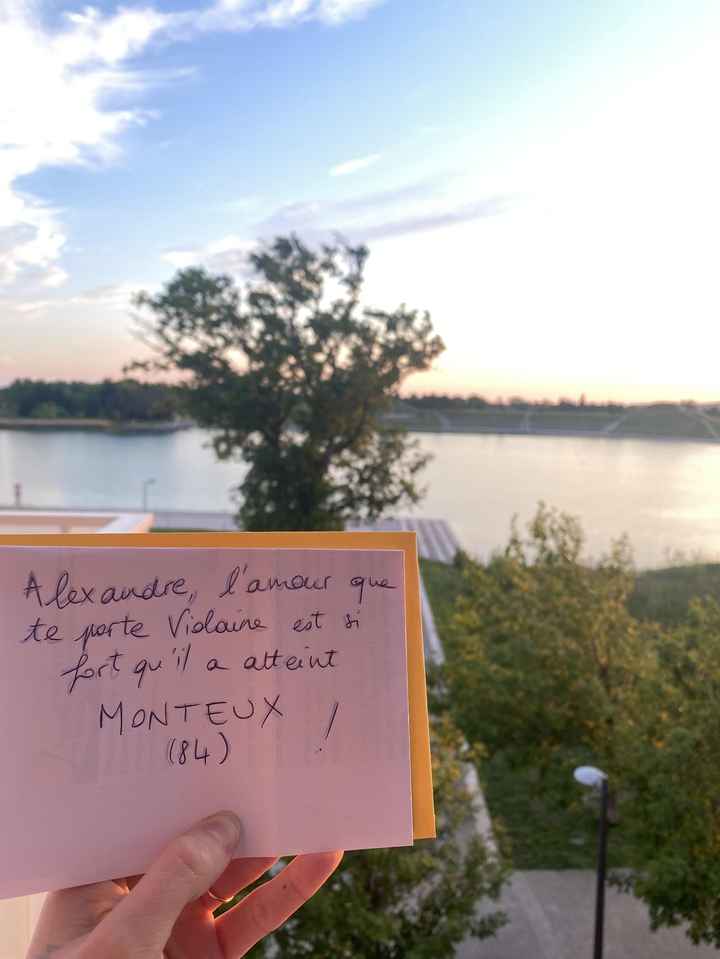 Alexandre, l'amour que
te porte Violaine est si
fort qu'il a atteint
MONTEUX !
(84)